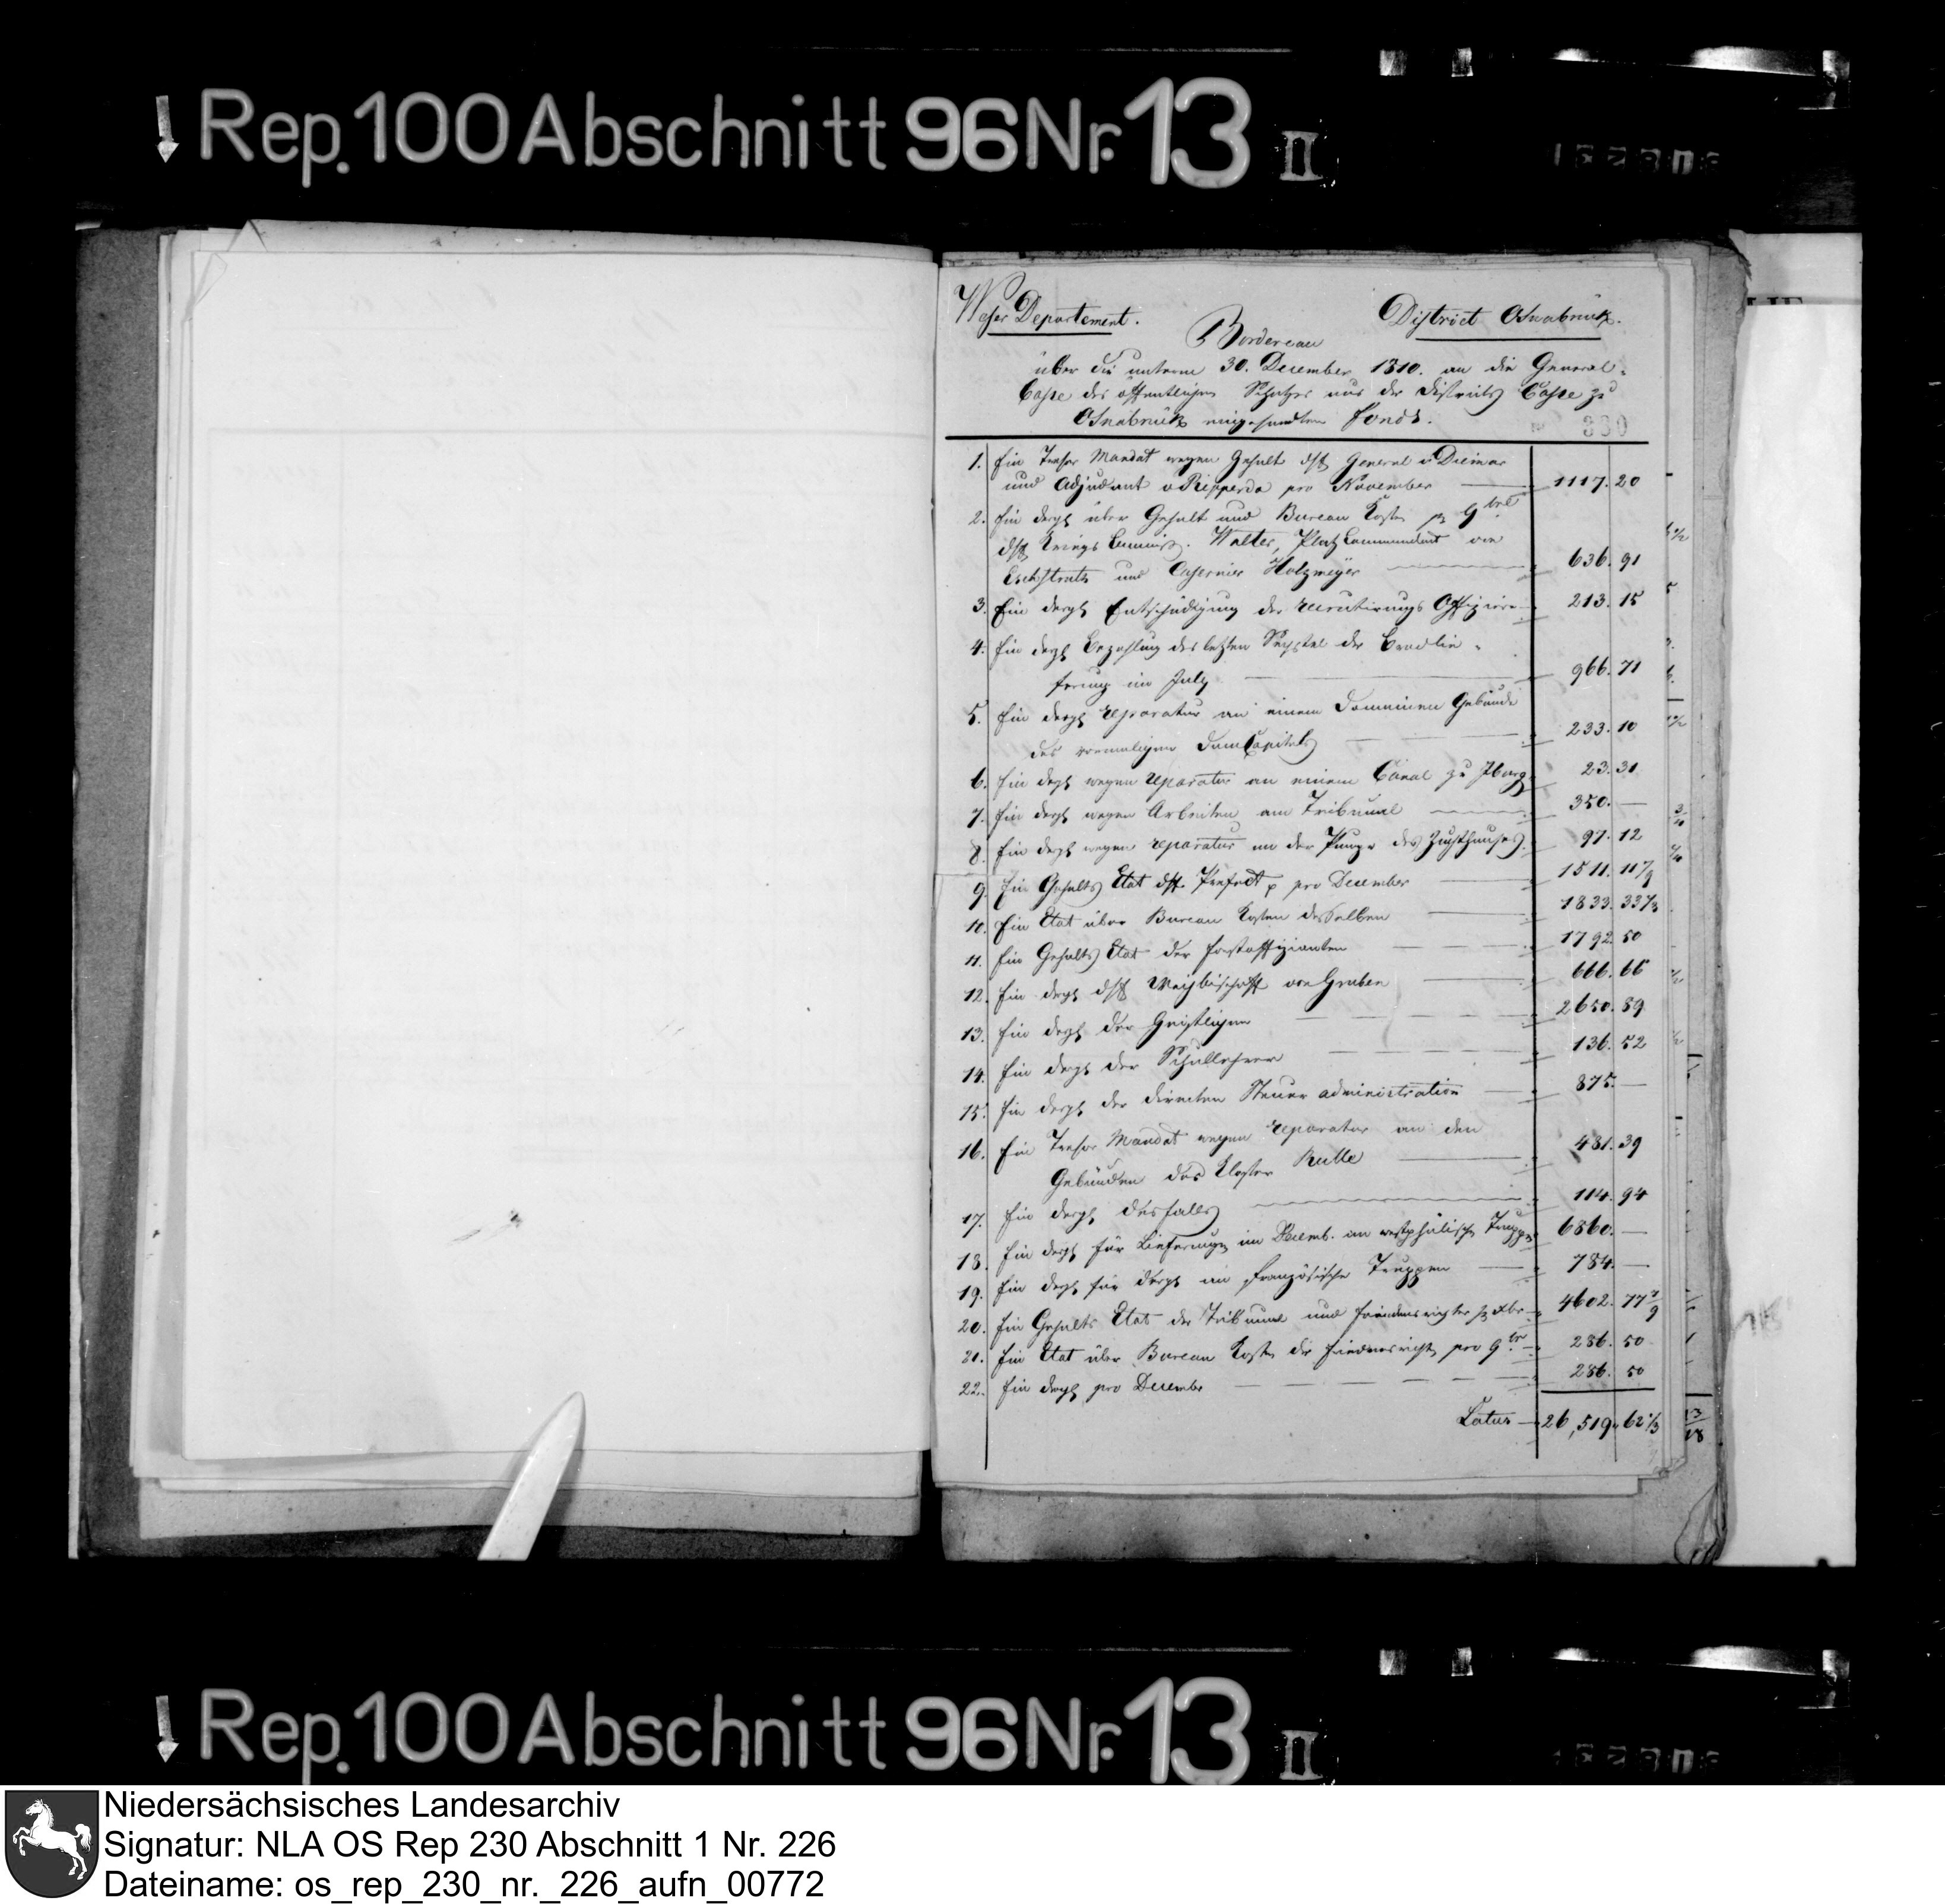 Rep. 100 Abschnitt 96 Nr. 13 II
Weser Departement. District Osnabrück.
Bordereau
über die unterm 30. December 1810. an die General-
Casse des öffentlichen Schatzes aus der Districts Casse zu
Osnabrück eingesandten Fonds.
330
1. Ein Tresor Mandat wegen Gehalt des General v Diemar
und Adjudant v Ripperda pro November 1117. 20
2. Ein dergl über Gehalt und Bureau Kosten pr 9bre
des Kriegs Commiss. Walter, Platz Commandant von
Eschstruth und Casernier Holzmeyer 636. 91
3. Ein dergl Entschädigung der recrutirungs Offiziere 213. 15
4. Ein dergl Bezahlung des letzten Sechstel der Brodlie-
ferung im July 966. 71
5. Ein dergl reparatur an einem Domainen Gebäude
des vormaligen DomCapitels 233. 10
6. Ein dergl wegen reparatur an einem Canal zu Iburg 23. 31
7. Ein dergl wegen Arbeiten am Tribunal 350. —
8. Ein dergl wegen reparatur an der Pumpe des Zuchthauses 97. 12
9. Ein Gehalts Etat des Präfect pro December 1511. 11 1/9
10. Ein Etat über Bureau Kosten desselben 1833. 33 1/3
11. Ein Gehalts Etat der Forstoffizianten 1792. 50
12. Ein dergl des Weihbischoff von Gruben 666. 66
13. Ein dergl der Geistlichen 2650. 89
14. Ein dergl der Schullehrer 136. 52
15. Ein dergl der directen Steuer administration 875. —
16. Ein Tresor Mandat wegen reparatur an den
Gebäuden des Kloster Rulle 481. 39
17. Ein dergl desfalls 114. 94
18. Ein dergl für Lieferungen im Decemb. an westphälische Truppen 6860. —
19. Ein dergl für dergl an französische Truppen 784. —
20. Ein Gehalts Etat der Tribunal und Friedensrichter pr Xbr 4602. 77 7/9
21. Ein Etat über Bureau Kosten der Friedensrichter pro 9br 286. 50
22. Ein dergl pro December 286. 50
Latus 26,519. 62 1/3
Rep. 100 Abschnitt 96 Nr. 13 II
Niedersächsisches Landesarchiv
Signatur: NLA OS Rep 230 Abschnitt 1 Nr. 226
Dateiname: os_rep_230_nr._226_aufn_00772